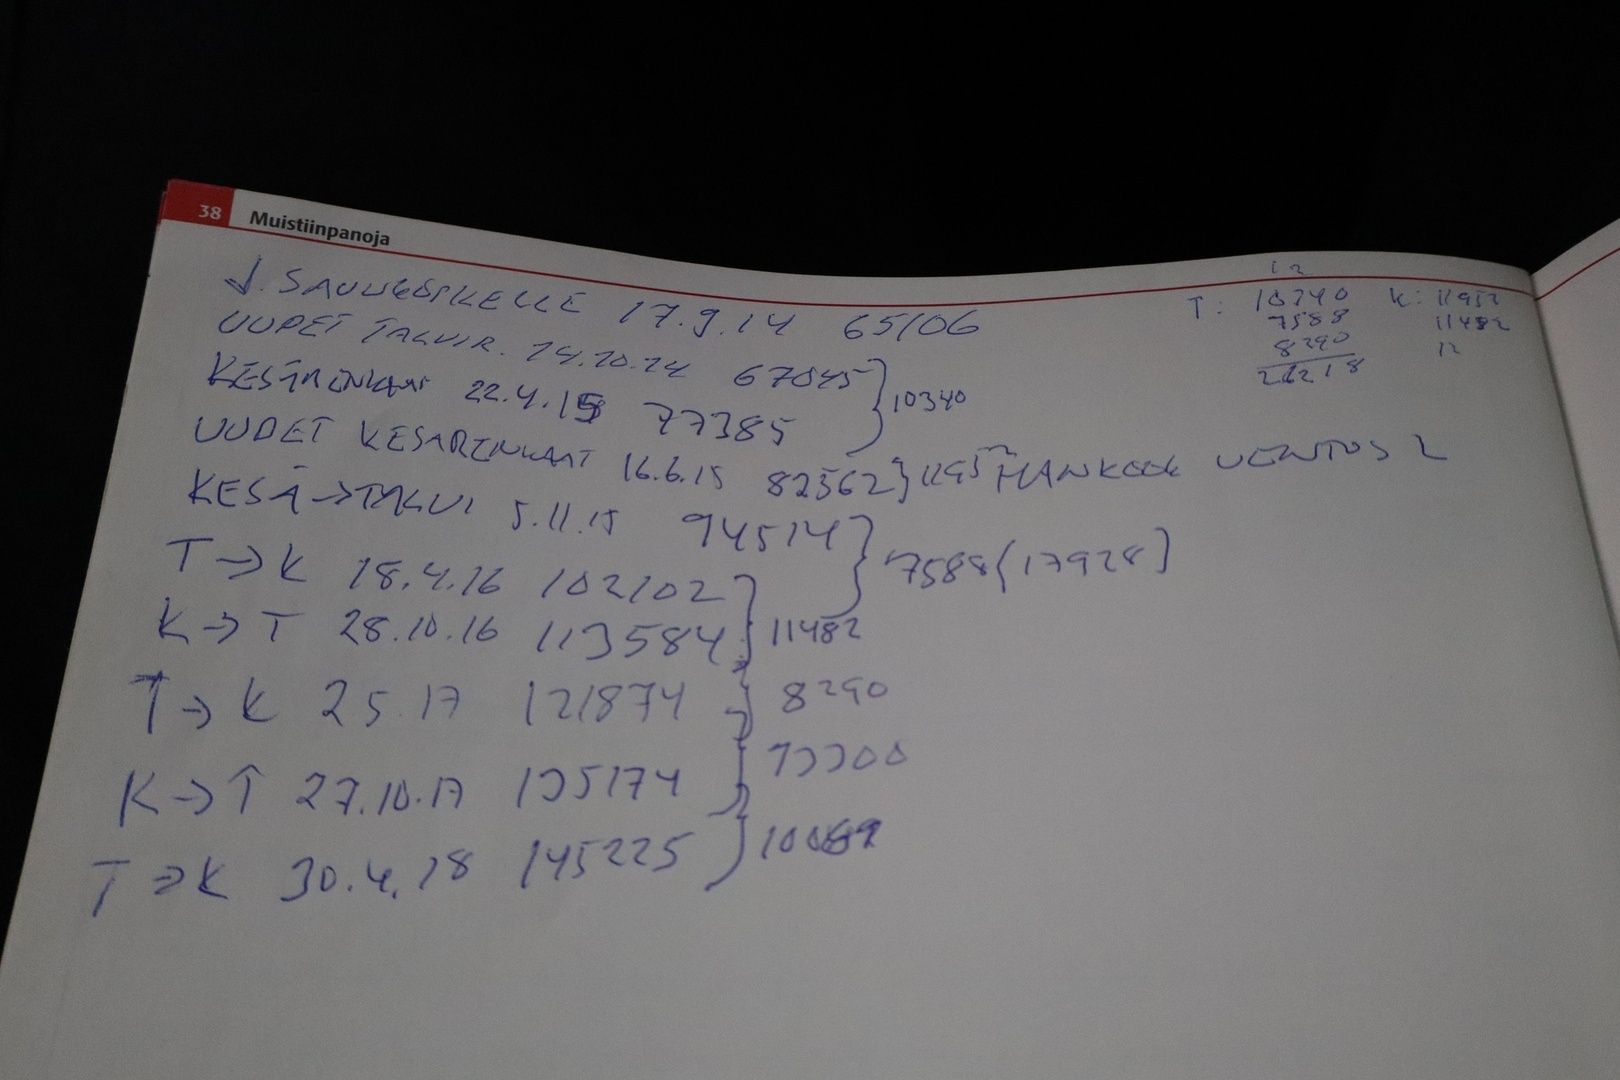 38 Muistiinpanoja
17.9.14 65106
UUDET TALVIR. 24.10.14 67045
KESÄRENKAAT 22.4.15 77385 } 10340
UUDET KESÄRENKAAT 16.6.15 82562 } 11952 HANKOOK VENTUS 2
KESÄ→TALVI 5.11.15 94514
T→K 18.4.16 102102 } 7588 (17928)
K→T 28.10.16 113584 } 11482
T→K 2 5.17 121874 } 8290
K→T 27.10.17 135174 } 13300
T→K 30.4.18 145225 }
12
T: 10340 K: 11952
7588 11482
8290 12
26218